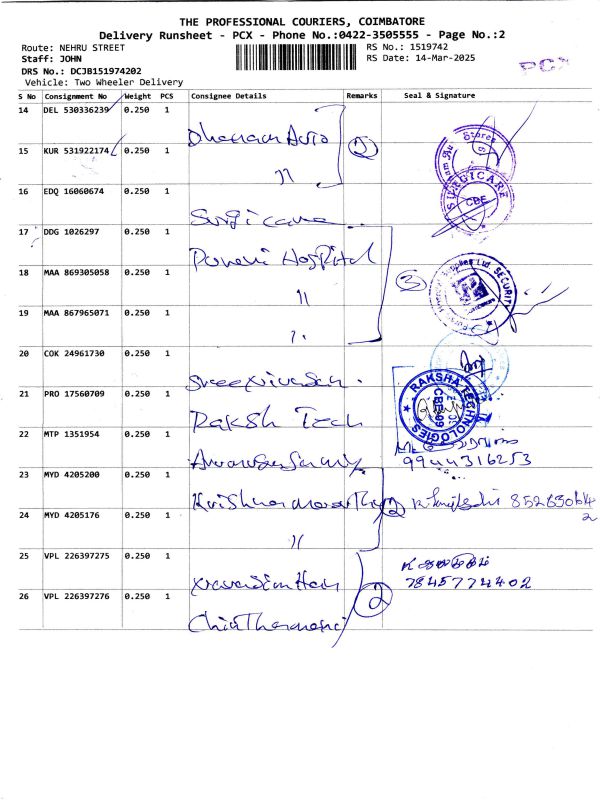 THE PROFESSIONAL COURIERS, COIMBATORE
Delivery Runsheet - PCX - Phone No.:0422-3505555 - Page No.:2
Route: NEHRU STREET
RS No.: 1519742
Staff: JOHN
RS Date: 14-Mar-2025
PCX
DRS No.: DCJB151974202
Vehicle: Two Wheeler Delivery
S No Consignment No Weight PCS Consignee Details Remarks Seal & Signature
14 DEL 530336239 0.250 1
15 KUR 531922174 0.250 1 2
"
16 EDQ 16060674 0.250 1 Surgicare
SURGICARE
CBE
17 DDG 1026297 0.250 1 Hospital
18 MAA 869305058 0.250 1 " 3
SECURITY
19 MAA 867965071 0.250 1 "
20 COK 24961730 0.250 1
21 PRO 17560709 0.250 1 Raksh Tech
RAKSHA TECHNOLOGIES
CBE-09
22 MTP 1351954 0.250 1
9944316253
23 MYD 4205200 0.250 1 Krishnamoorthy 2
24 MYD 4205176 0.250 1 "
25 VPL 226397275 0.250 1
7845774402
26 VPL 226397276 0.250 1 2